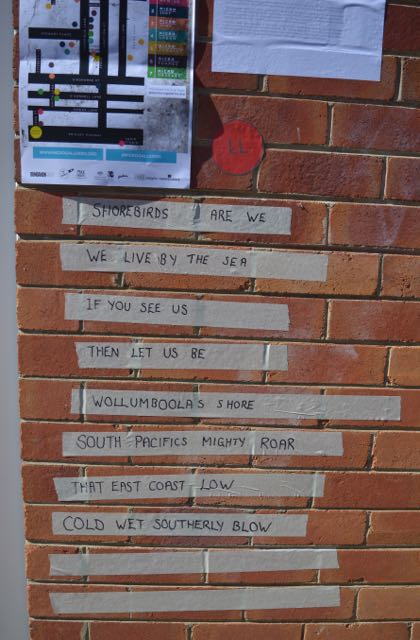 LL
SHOREBIRDS ARE WE
WE LIVE BY THE SEA
IF YOU SEE US
THEN LET US BE
WOLLUMBOOLAS SHORE
SOUTH PACIFICS MIGHTY ROAR
THAT EAST COAST LOW
COLD WET SOUTHERLY BLOW